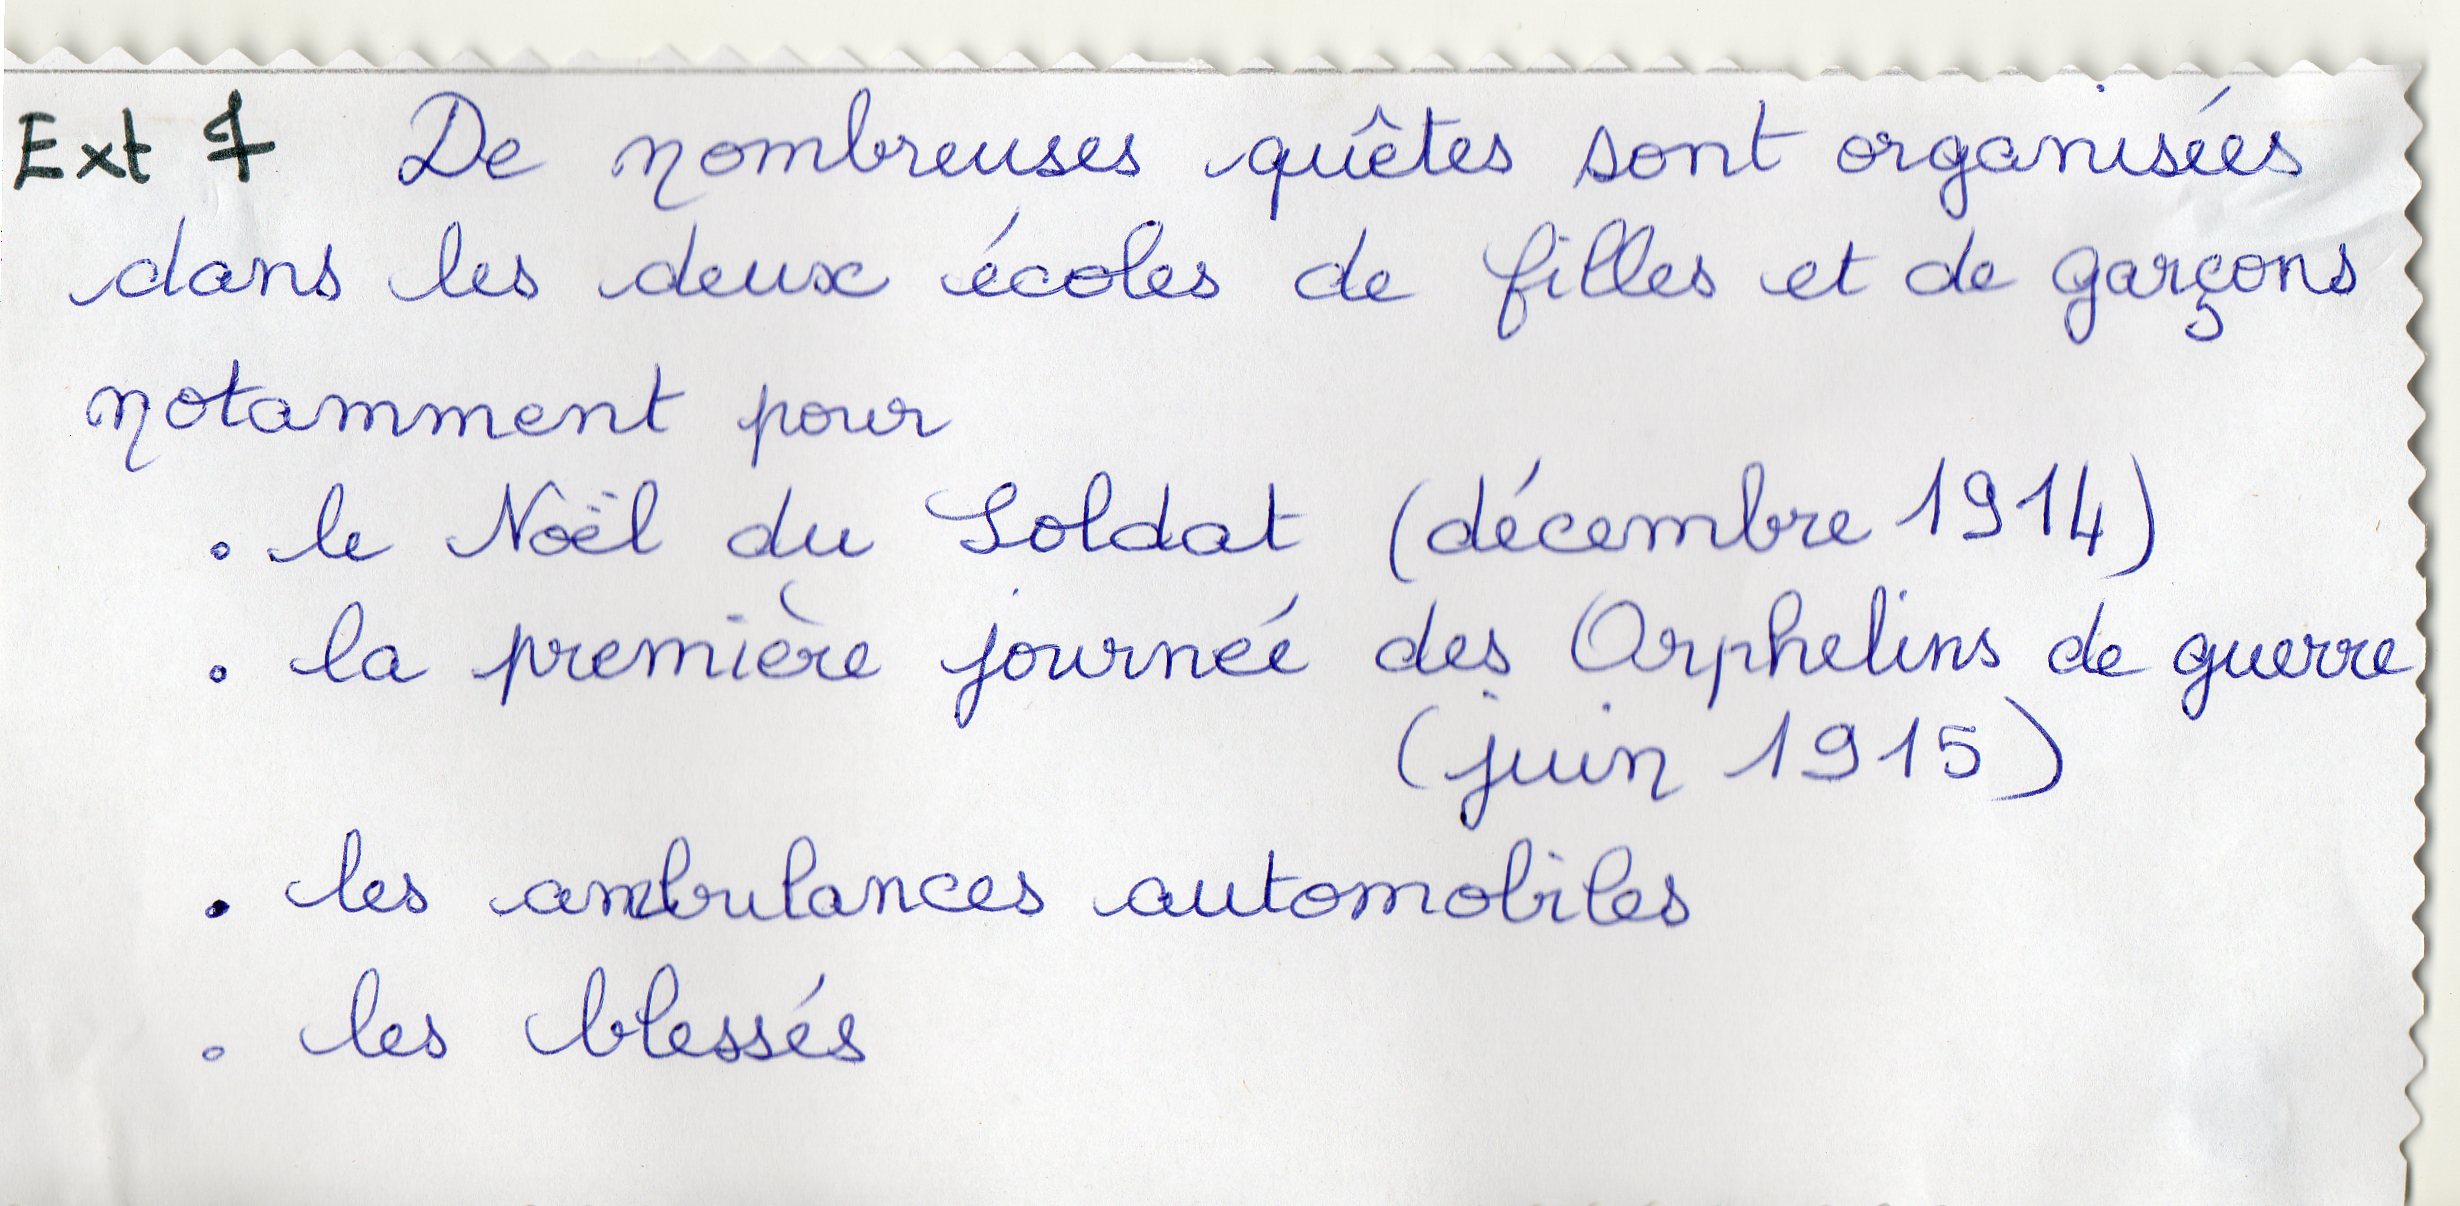 Ext 7 De nombreuses quêtes sont organisées
dans les deux écoles de filles et de garçons
notamment pour
. le Noël du Soldat (décembre 1914)
. la première journée des Orphelins de guerre
(juin 1915)
. les ambulances automobiles
. les blessés